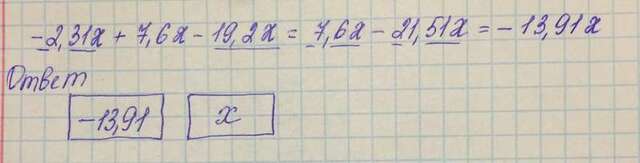 -2,31x + 7,6x - 19,2x = 7,6x - 21,51x = -13,91x
Ответ
-13,91 x